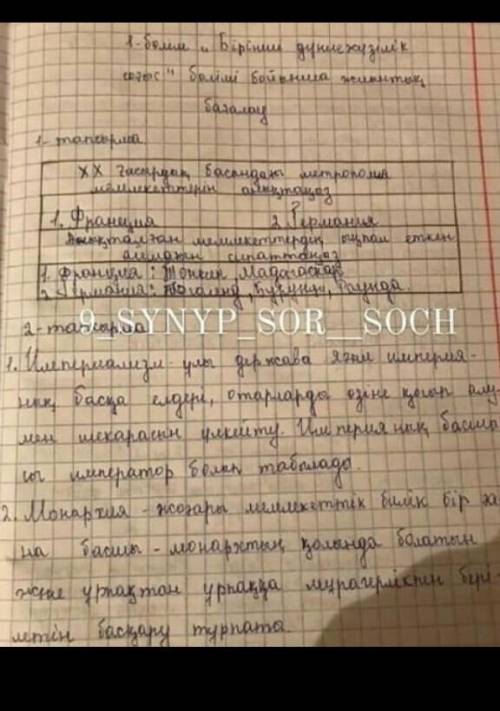 1-бөлім „Бірінші дүниежүзілік
соғыс" бөлімі бойынша жиынтық
бағалау
1-тапсырма
XX ғасырдың басындағы метрополия
мемлекеттерін анықтаңыз
1. Франция 2. Германия
Анықталған мемлекеттердің ықпал еткен
аймағын сипаттаңыз
1. Франция: Тонкин, Мадагаскар
2. Германия: Тоголенд, Бурунди, Руанда.
2-тапсырма
9_SYNYP_SOR__SOCH
1. Империализм - ұлы держава яғни империя-
ның басқа елдері, отарларды өзіне қосып алу-
мен шекарасын үлкейту. Империяның басшы-
сы император болып табылады.
2. Монархия - жоғары мемлекеттік билік бір ға-
на басшы - монархтың қолында болатын
және ұрпақтан ұрпаққа мұрагерлікпен бері-
летін басқару тұрпаты.